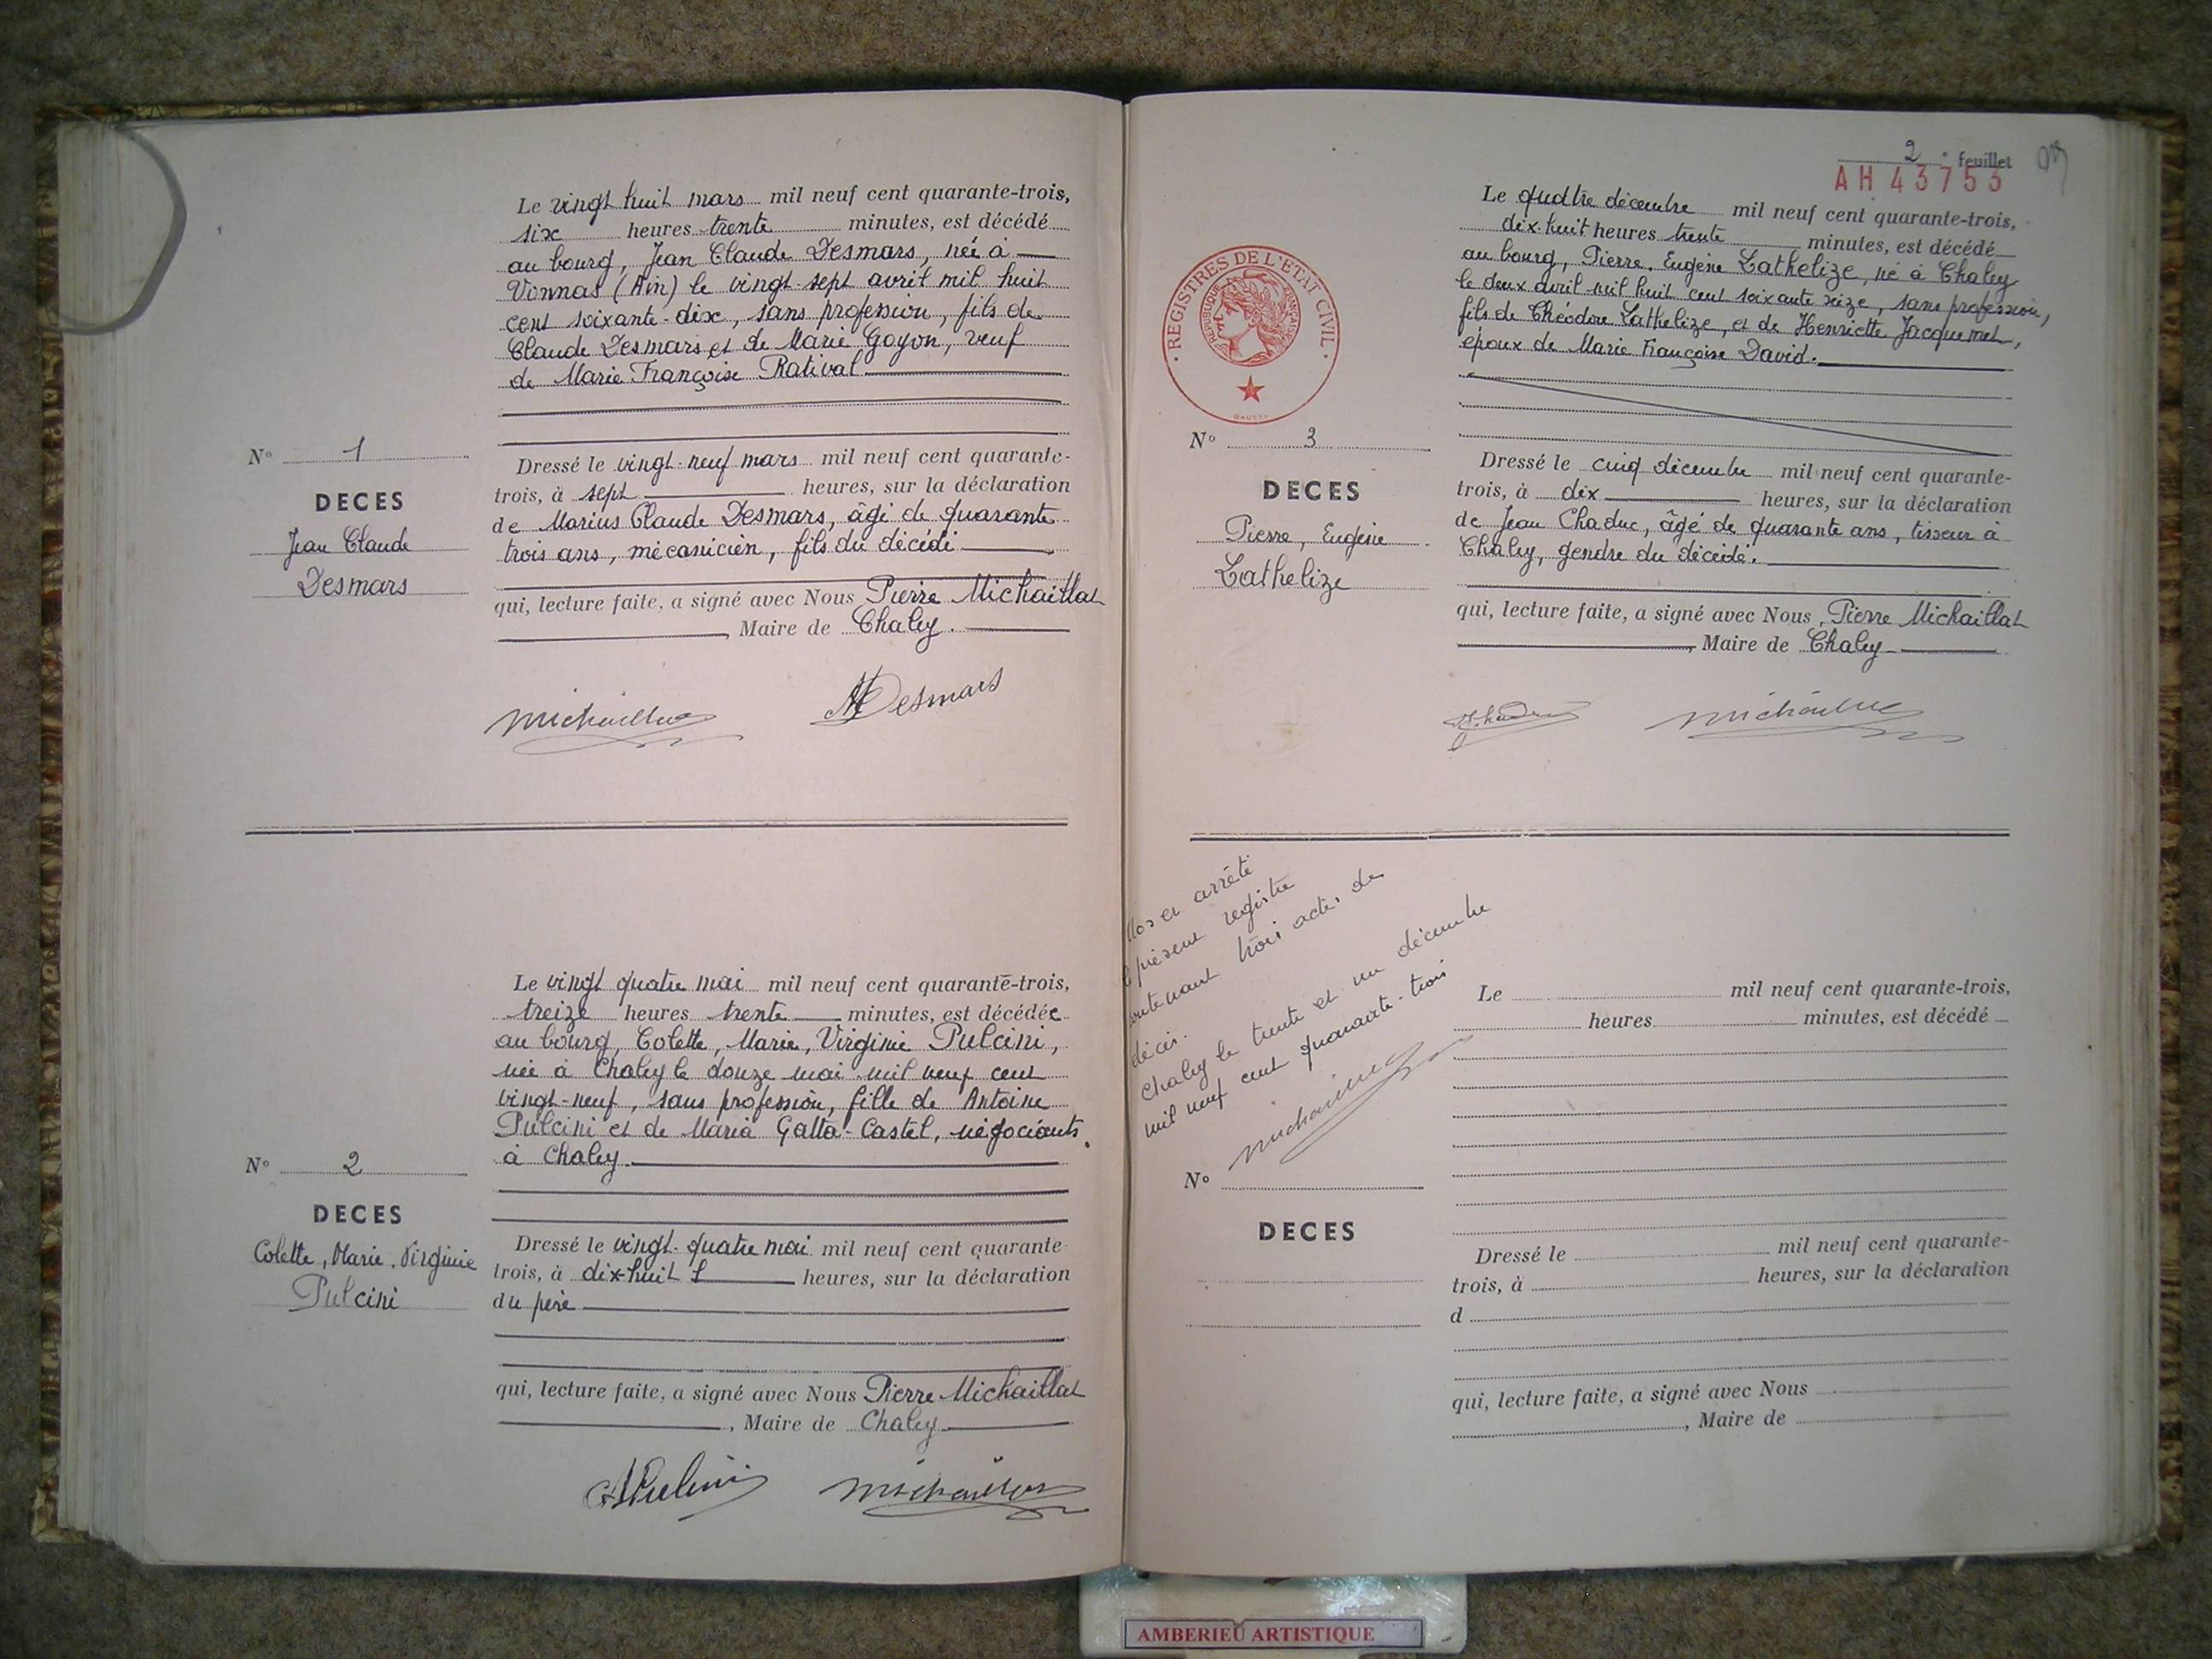 Le vingt huit mars mil neuf cent quarante-trois,
six heures trente minutes, est décédé
au bourg, Jean Claude Desmars, né à
Vonnas (Ain) le vingt-sept avril mil huit
cent soixante-dix, sans profession, fils de
Claude Desmars et de Marie Goyon, veuf
de Marie Françoise Ratival
N° 1
DECES
Jean Claude
Desmars
Dressé le vingt-neuf mars mil neuf cent quarante-
trois, à sept heures, sur la déclaration
de Marius Claude Desmars, âgé de quarante
trois ans, mécanicien, fils du décédé
qui, lecture faite, a signé avec Nous Pierre Michaillat
, Maire de Chaley.
Michaillat
Desmars
Le vingt quatre mai mil neuf cent quarante-trois,
treize heures trente minutes, est décédée
au bourg, Colette, Marie, Virginie Pulcini,
née à Chaley le douze mai mil neuf cent
vingt-neuf, sans profession, fille de Antoine
Pulcini et de Maria Gatta-Castel, négociants
à Chaley
N° 2
DECES
Colette, Marie, Virginie
Pulcini
Dressé le vingt-quatre mai mil neuf cent quarante
trois, à dix-huit heures, sur la déclaration
du père
qui, lecture faite, a signé avec Nous Pierre Michaillat
, Maire de Chaley
APulcini
Michaillat
2e feuillet
AH 43753
REGISTRES DE L'ETAT CIVIL
REPUBLIQUE FRANÇAISE
Le quatre décembre mil neuf cent quarante-trois,
dix-huit heures trente minutes, est décédé
au bourg, Pierre, Eugène Lathelize, né à Chaley
le deux avril mil huit cent soixante seize, sans profession,
fils de Théodore Lathelize, et de Henriette Jacquemet,
époux de Marie Françoise David.
N° 3
DECES
Pierre, Eugène
Lathelize
Dressé le cinq décembre mil neuf cent quarante-
trois, à dix heures, sur la déclaration
de Jean Chaduc, âgé de quarante ans, tisseur à
Chaley, gendre du décédé.
qui, lecture faite, a signé avec Nous, Pierre Michaillat
, Maire de Chaley
Michaillat
Clos et arrêté
le présent registre
contenant trois actes de
décès.
Chaley le trente et un décembre
mil neuf cent quarante-trois
Michaillat
Le mil neuf cent quarante-trois,
heures minutes, est décédé
N°
DECES
Dressé le mil neuf cent quarante-
trois, à heures, sur la déclaration
d
qui, lecture faite, a signé avec Nous
, Maire de
AMBERIEU ARTISTIQUE